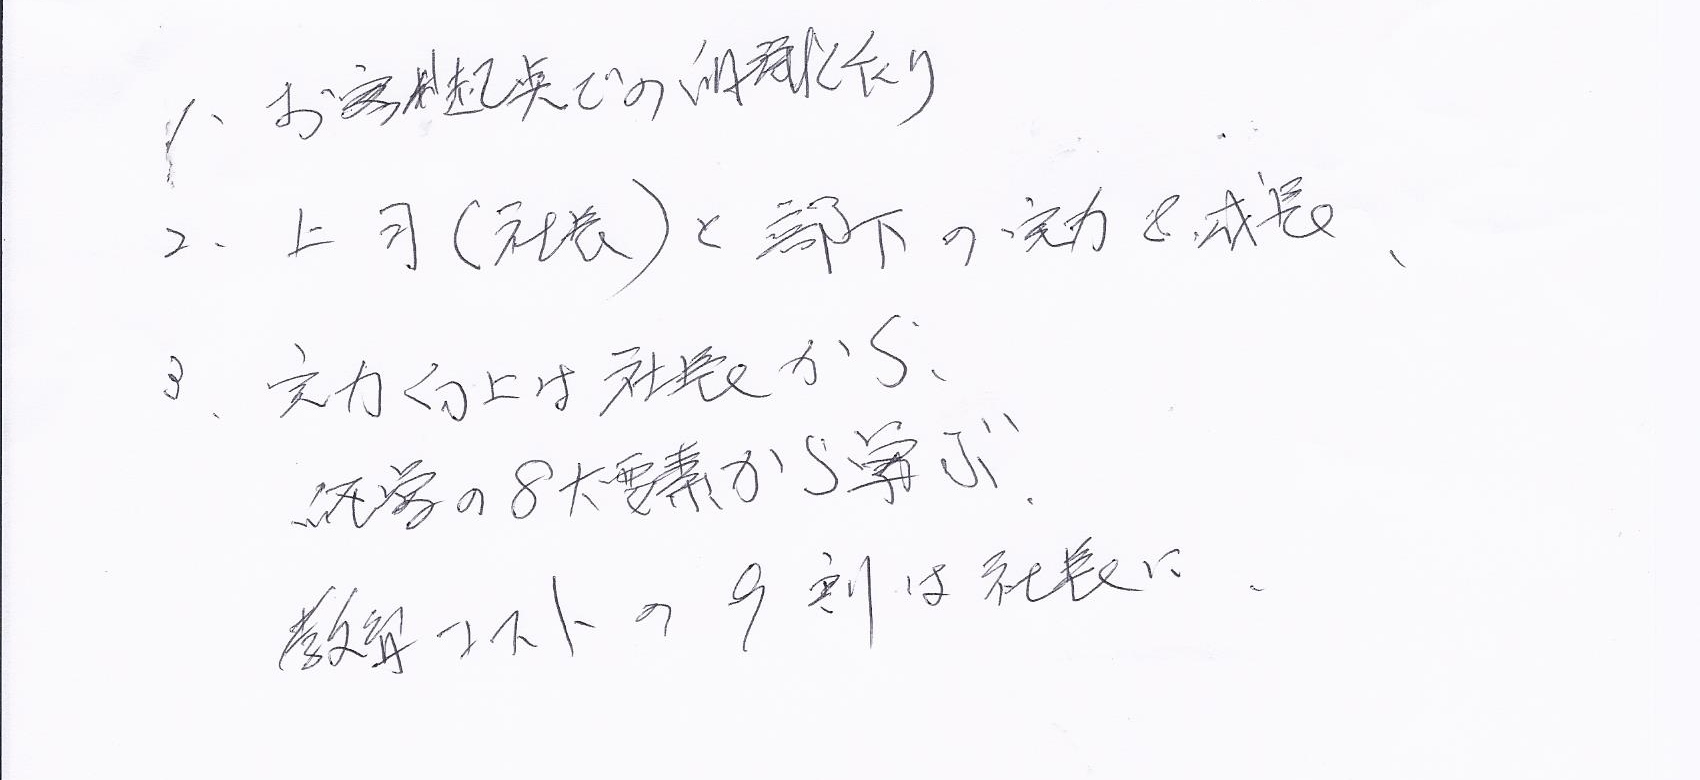 1、お客様起点での組織作り
2、上司(社長)と部下の実力を成長、
3、実力向上は社長から、
の8大要素から学ぶ、
教育コストの9割は社長に、